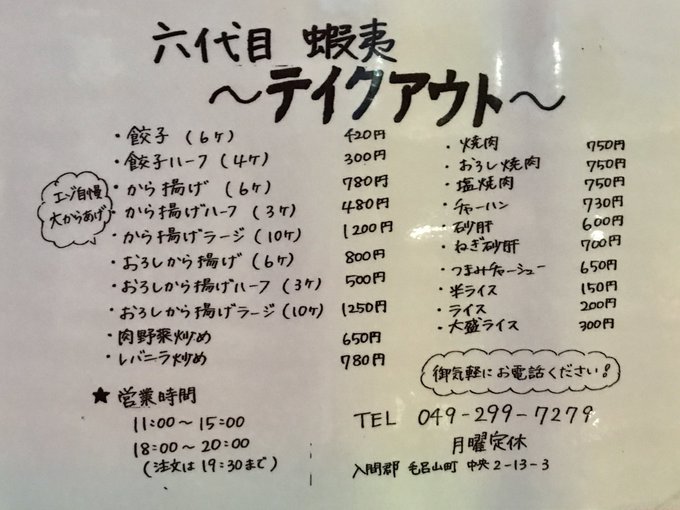 六代目 蝦夷
〜テイクアウト〜
・餃子 (6ヶ) 420円
・餃子ハーフ (4ヶ) 300円
・から揚げ (6ヶ) 780円
・から揚げハーフ (3ヶ) 480円
・から揚げラージ (10ヶ) 1200円
・おろしから揚げ (6ヶ) 800円
・おろしから揚げハーフ (3ヶ) 500円
・おろしから揚げラージ (10ヶ) 1250円
・肉野菜炒め 650円
・レバニラ炒め 780円
自慢
大からあげ
・焼肉 750円
・おろし焼肉 750円
・塩焼肉 750円
・チャーハン 730円
・砂肝 600円
・ねぎ砂肝 700円
・つまみチャーシュー 650円
・半ライス 150円
・ライス 200円
・大盛ライス 300円
御気軽にお電話ください!
★ 営業時間
11:00〜15:00
18:00〜20:00
(注文は19:30まで)
TEL 049-299-7279
月曜定休
入間郡 毛呂山町 中央2-13-3